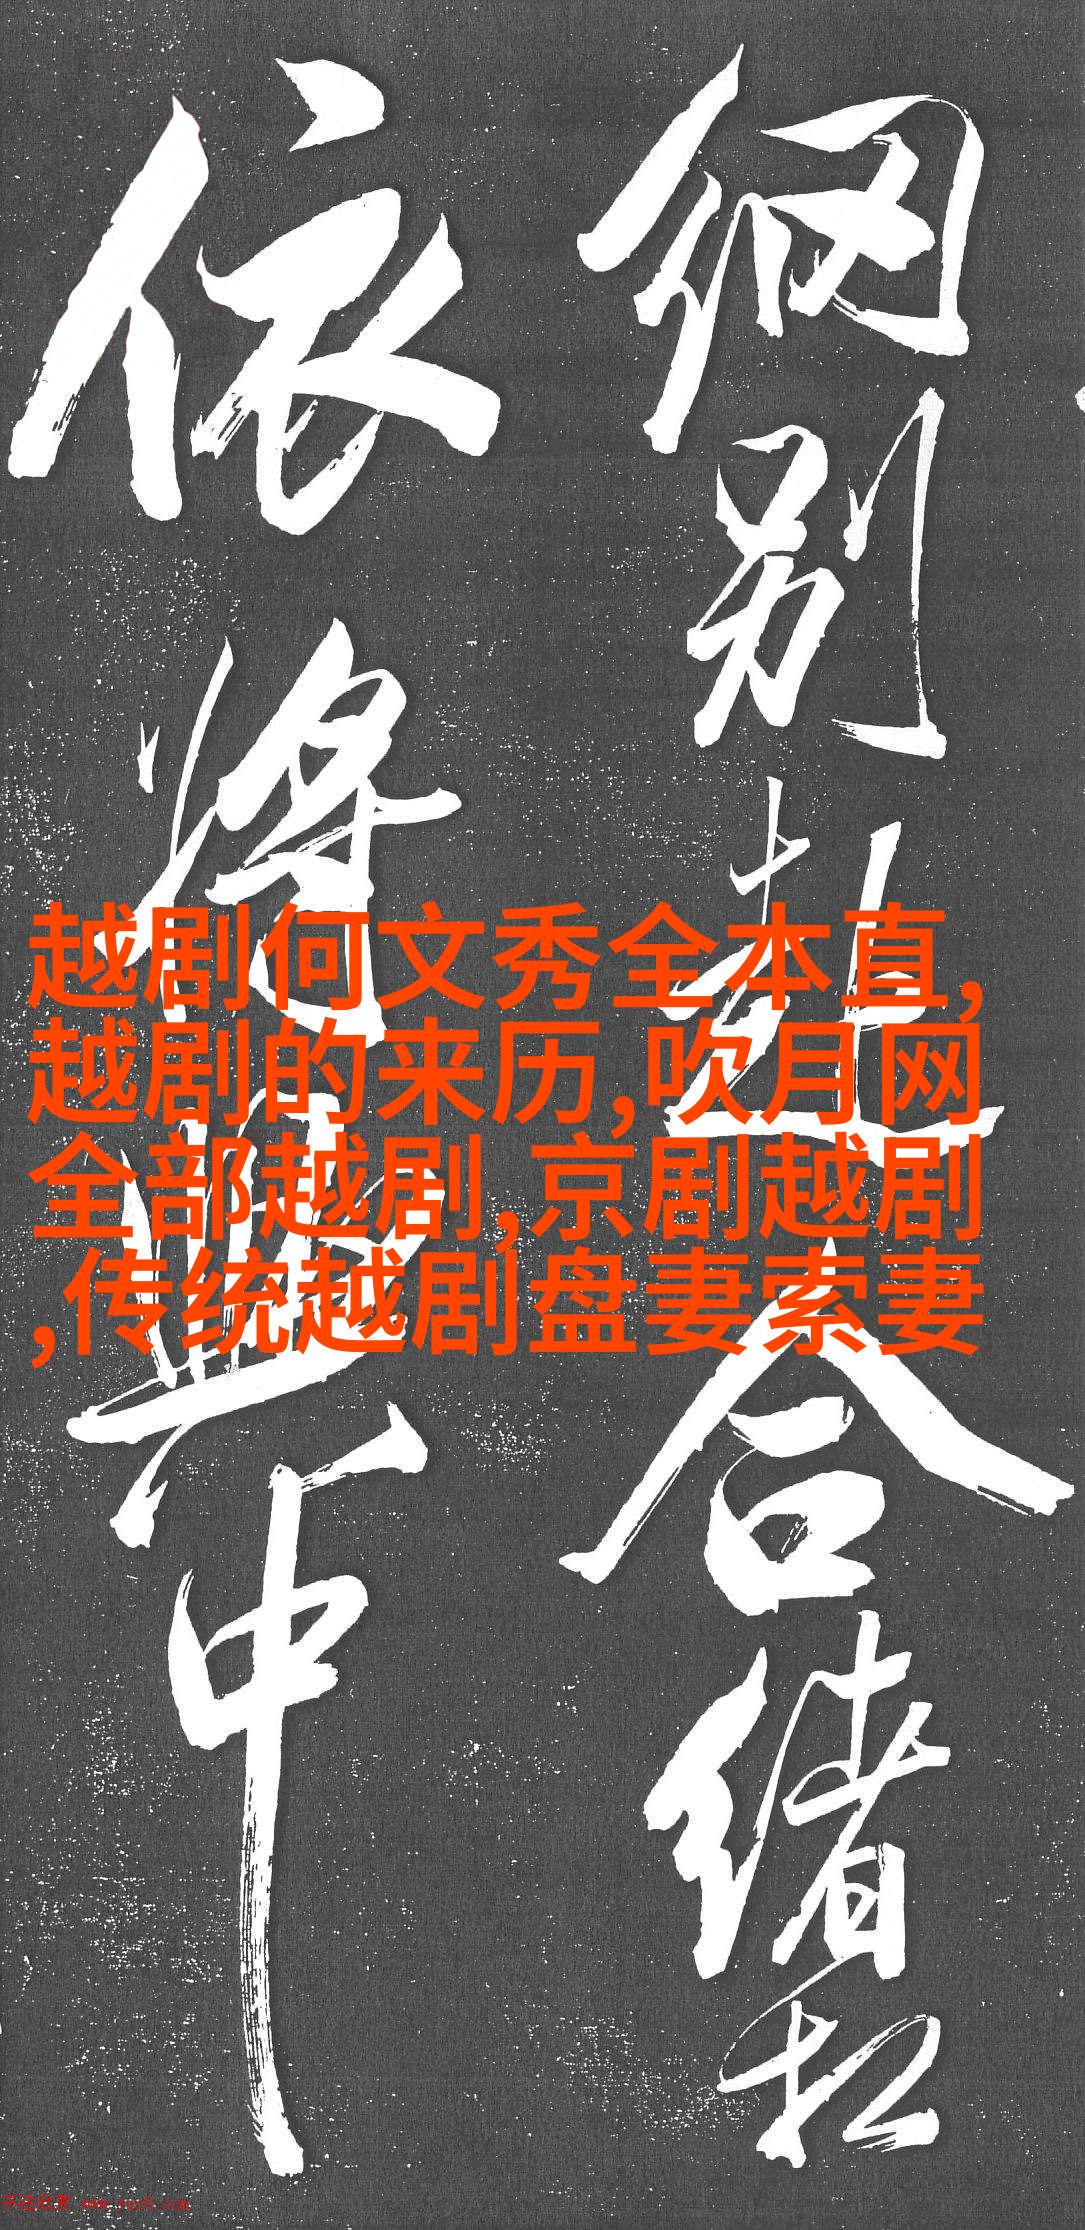 细别赴合绪松
依将照中
越剧何文秀全本直,
越剧的来历,吹月网
全部越剧,京剧越剧
,传统越剧盘妻索妻
书法欣赏 www.yac8.com